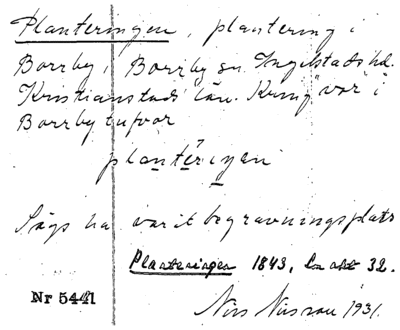 Planteringen, plantering i
Borrby, Borrby sn. Ingelstads hd.
Kristianstads län. Kring var i
Borrby tufvor
plantẹringen
Sägs ha varit begravningsplats
Planteringen 1843, Lm akt 32.
Nr 5441
Nils Nilsson 1931.